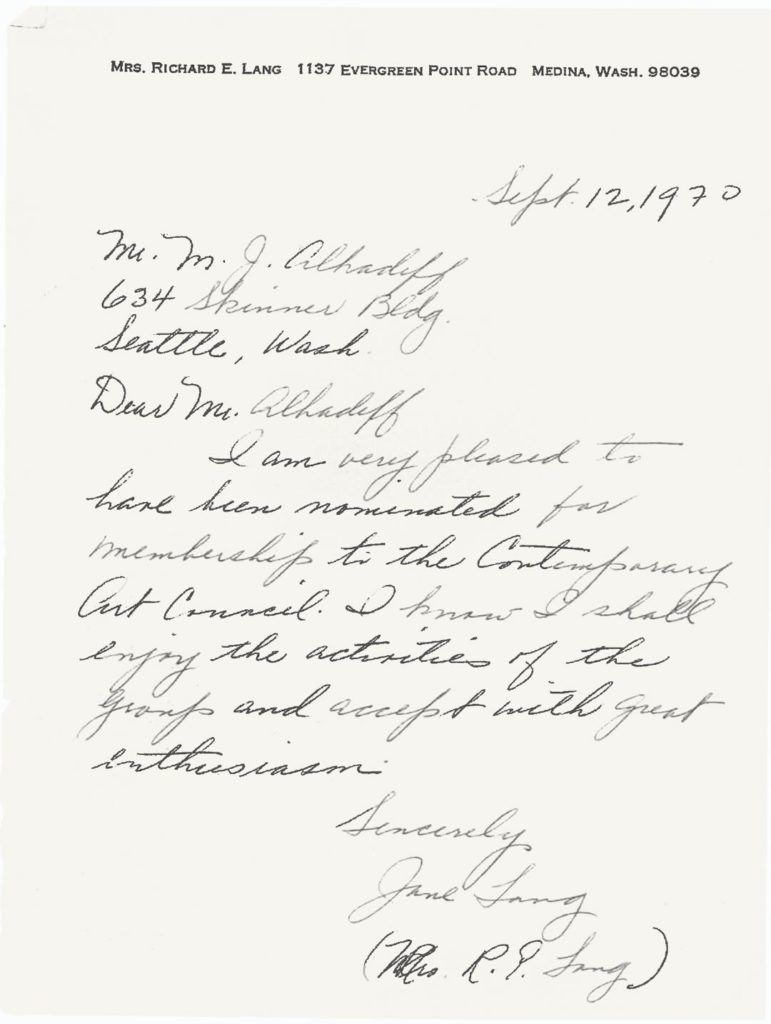 MRS. RICHARD E. LANG 1137 EVERGREEN POINT ROAD MEDINA, WASH. 98039
Sept. 12, 1970
Mr. M. J. Alhadeff
634 Skinner Bldg.
Seattle, Wash.
Dear Mr. Alhadeff
I am very pleased to
have been nominated for
membership to the Contemporary
Art Council. I know I shall
enjoy the activities of the
group and accept with great
enthusiasm.
Sincerely
Jane Lang
(Mrs. R. E. Lang)